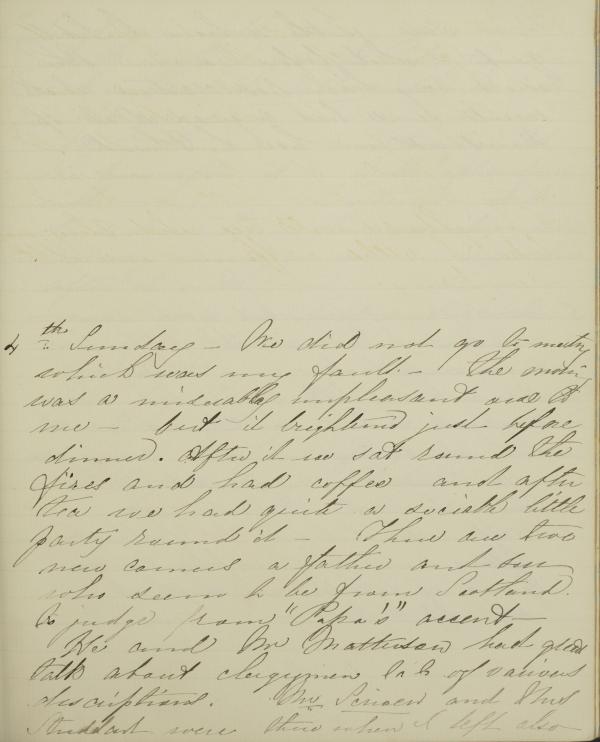 4th Sunday - We did not go to meeting
which was my fault. - The morn
was a miserably unpleasant one to
me - but it brightend just before
dinner. After it we sat round the
fires and had coffee and after
tea we had quite a sociable little
party round it - There are two
new comers a father and son
who seem to be from Scotland.
to judge from "Papa's" accent -
He and Mr Matteson had great
talk about clergymen &c &c of various
descriptions. Mr and Mrs
Studdart were there when I left also